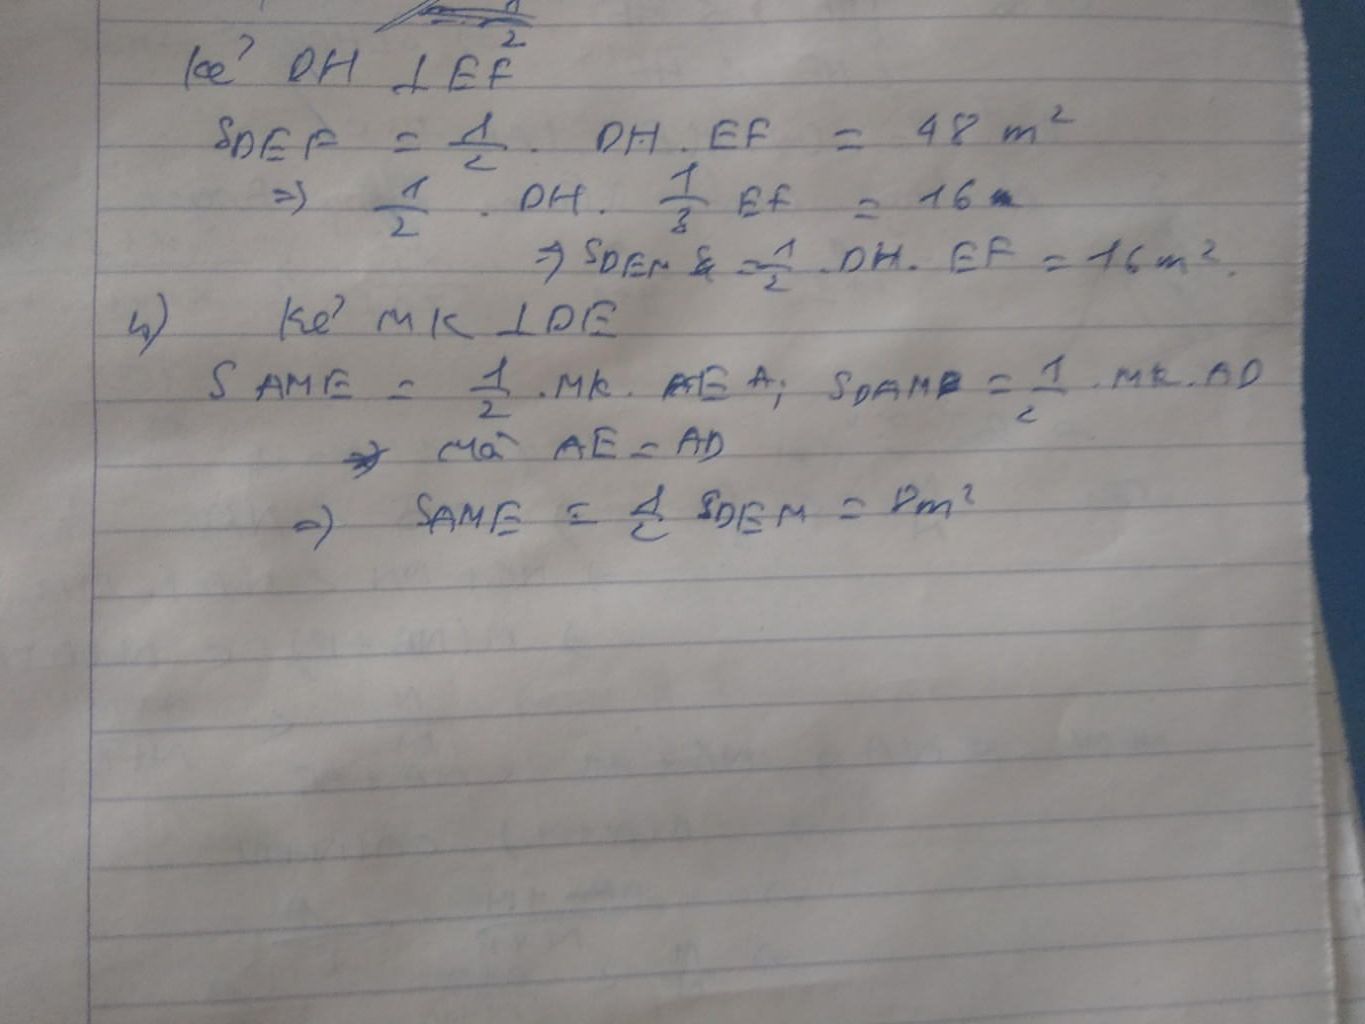 2
Kẻ DH ⊥ EF
SDEF = 1/2 . DH . EF = 48 m²
=> 1/2 . DH . 1/3 EF = 16
=> SDEM = 1/2 . DH . EF = 16 m².
b) Kẻ MK ⊥ DE
SAME = 1/2 . MK . EA; SDAM = 1/2 . MK . AD
Mà AE = AD
=> SAME = 1/2 SDEM = 8m²